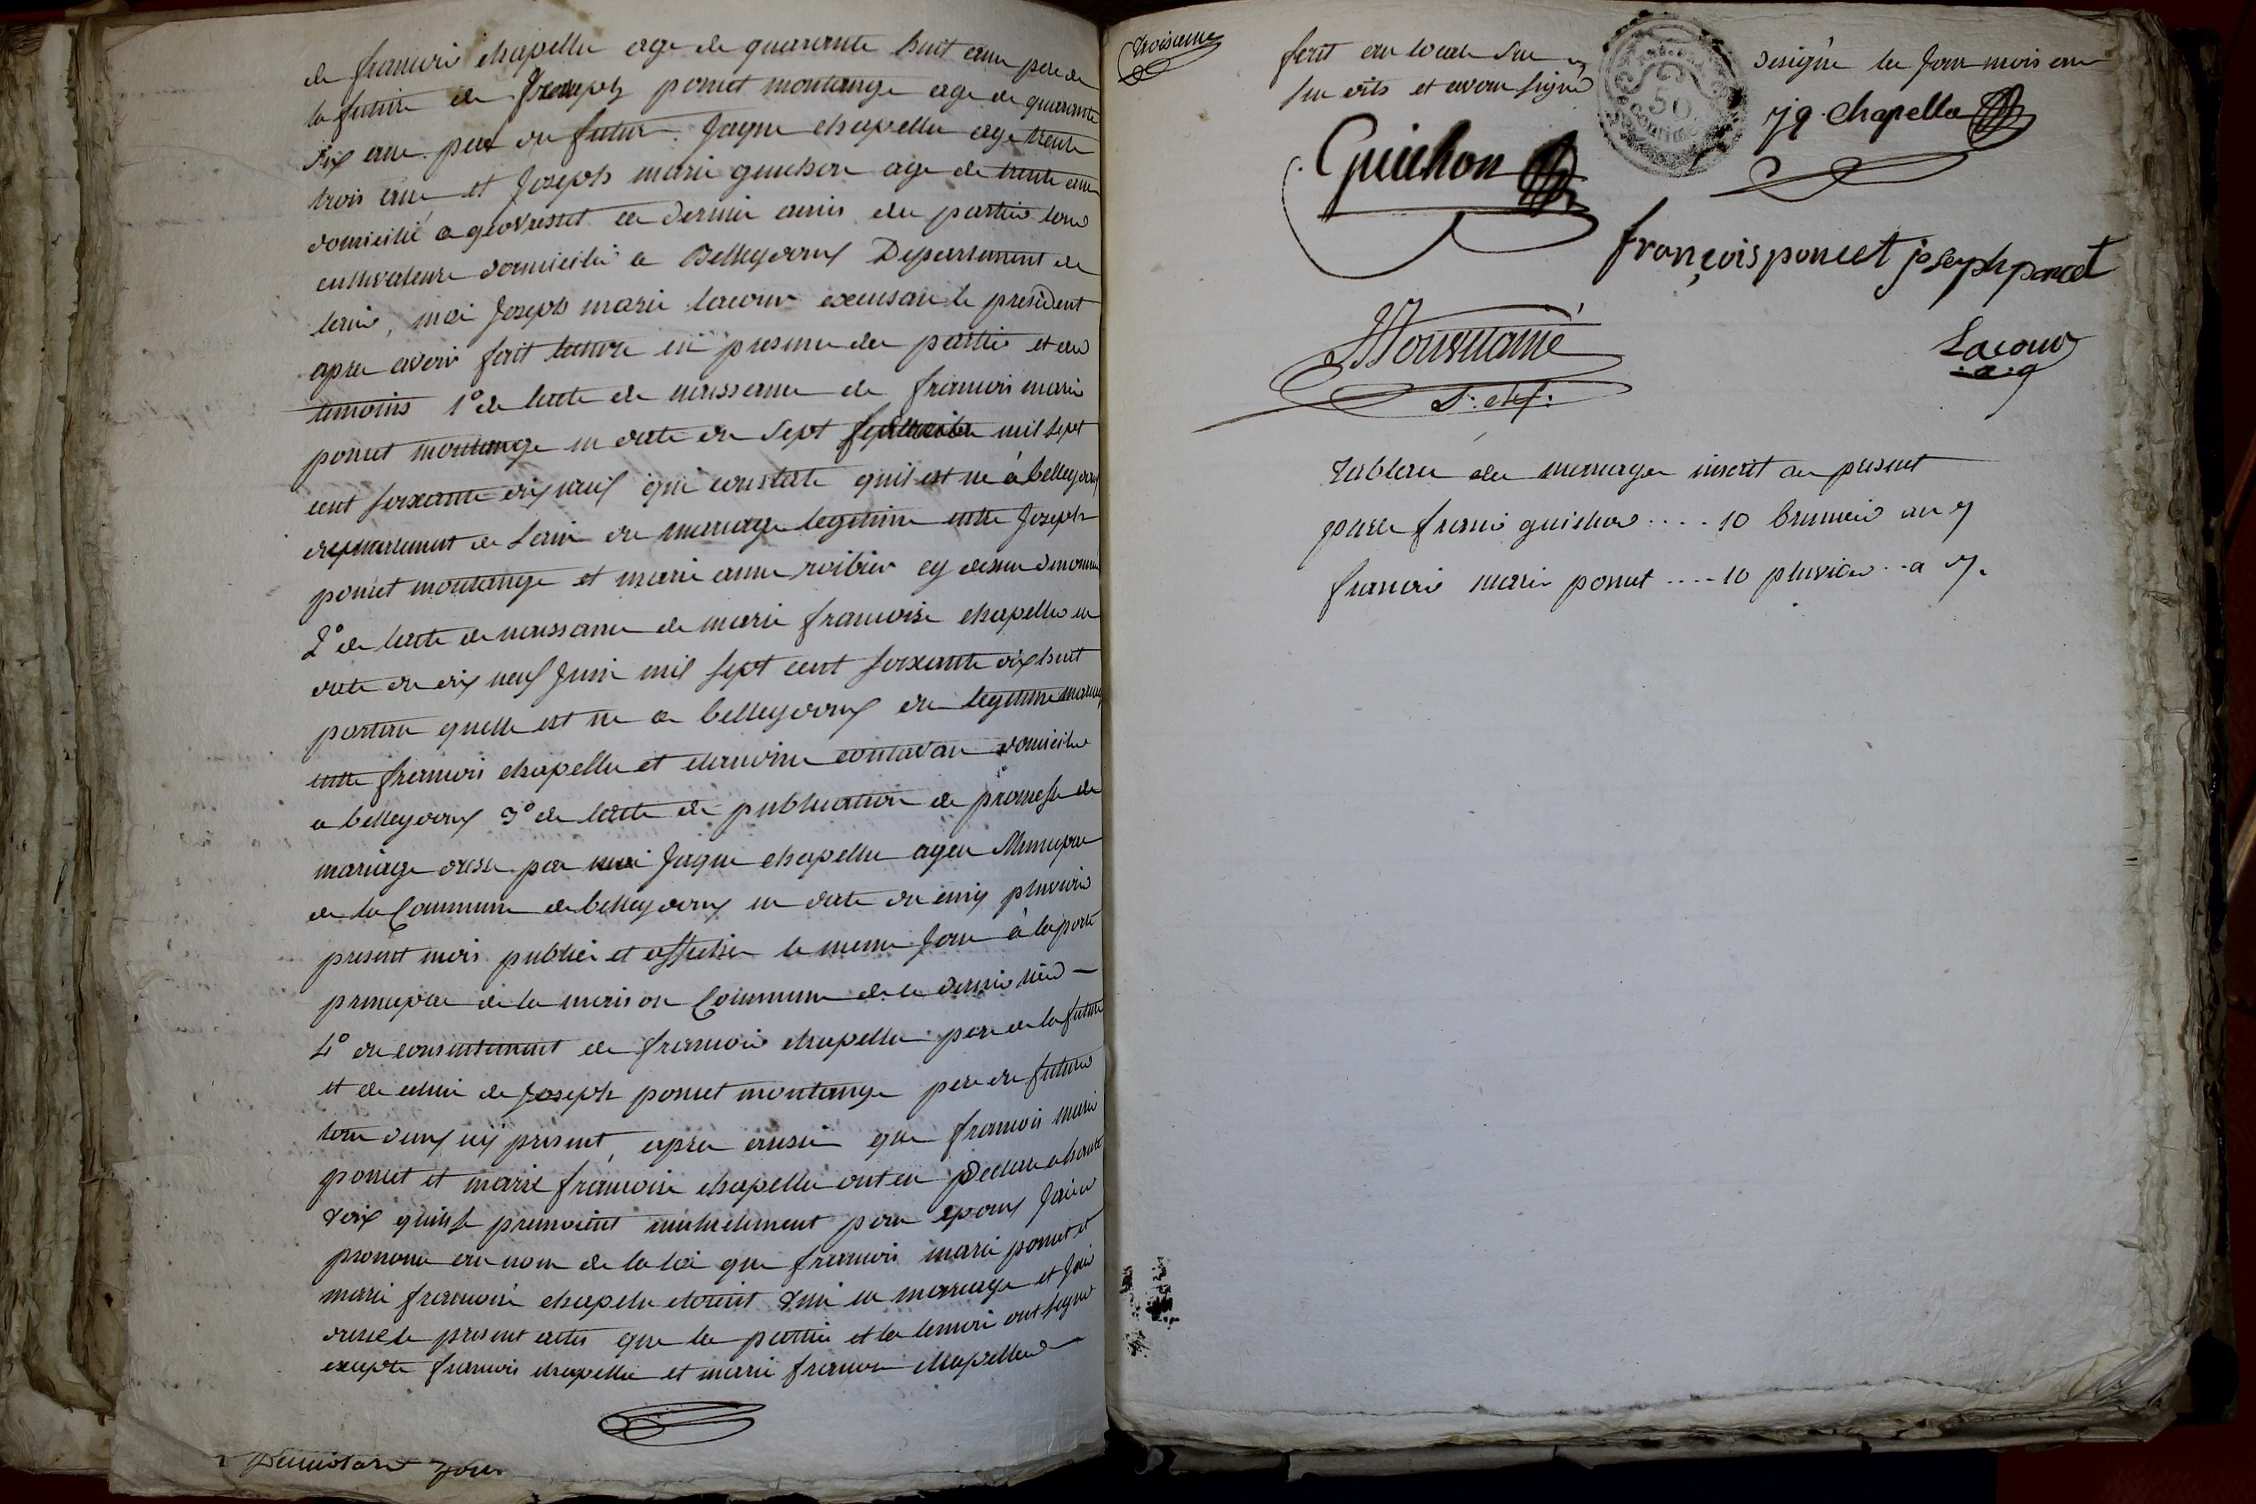 de francois chapellu age de quarante huit ans pere de
la future de Joseph poncet montange age de quarante
six ans pere du futur. Jaque chapellu age trente
trois ans et Joseph marie guichon age de trente ans
domicilié a giovresset ce dernier amis des parties tous
cultivateurs domicilié a Belleydoux Departement de
lain, moi Joseph marie lacour excusant le president
apres avoir fait lecture en presence des parties et des
temoins 1° de lacte de naissance de francois marie
poncet montange en date du sept septembre mil sept
cent soixante dix neuf qui constate quil est né à belleydoux
departement de Lain du mariage legitime entre Joseph
poncet montange et marie anne roibier cy dessu denommé
2° de lacte de naissance de marie francoise chapellu en
date du dix neuf Juin mil sept cent soixante dix huit
portan quelle est né a belleydoux du legitime mariage
entre francois chapellu et claudine domicilie
a belleydoux 3° de lacte de publication de promesse de
mariage dresse par moi Jaque chapellu agen Municipal
de la Commune de belleydoux en date du cinq pluviose
present mois publier et afficher le meme Jour à la porte
principale de la maison Commune de ce dernier lieu
4° du consentement de francois chapellu pere de la future
et de celui de Joseph poncet montange pere du future
tous deux icy present, apres aussi que francois marie
poncet et marie francoise chapellu ont eu Declare a haute
voix quils se prenoient mutuelement pour epoux Jai
prononce au nom de la loi que francois marie poncet et
marie francoise chapellu etoient uni en mariage et Jai
dresse le present actes que les parties et les temoins ont signé
excepte francois chapellu et marie francoise chapellu
troisieme
fait au local sus designé les Jour mois an
sus dits et avons signé
50
jq. Chapellu
Guichon
françois poncet joseph poncet
Lacour
a. g
S. chef.
Tableau des mariages inscrit au present
francois guichon .... 10 brumaire an 7
francois marie poncet .... 10 pluviose .. a 7.